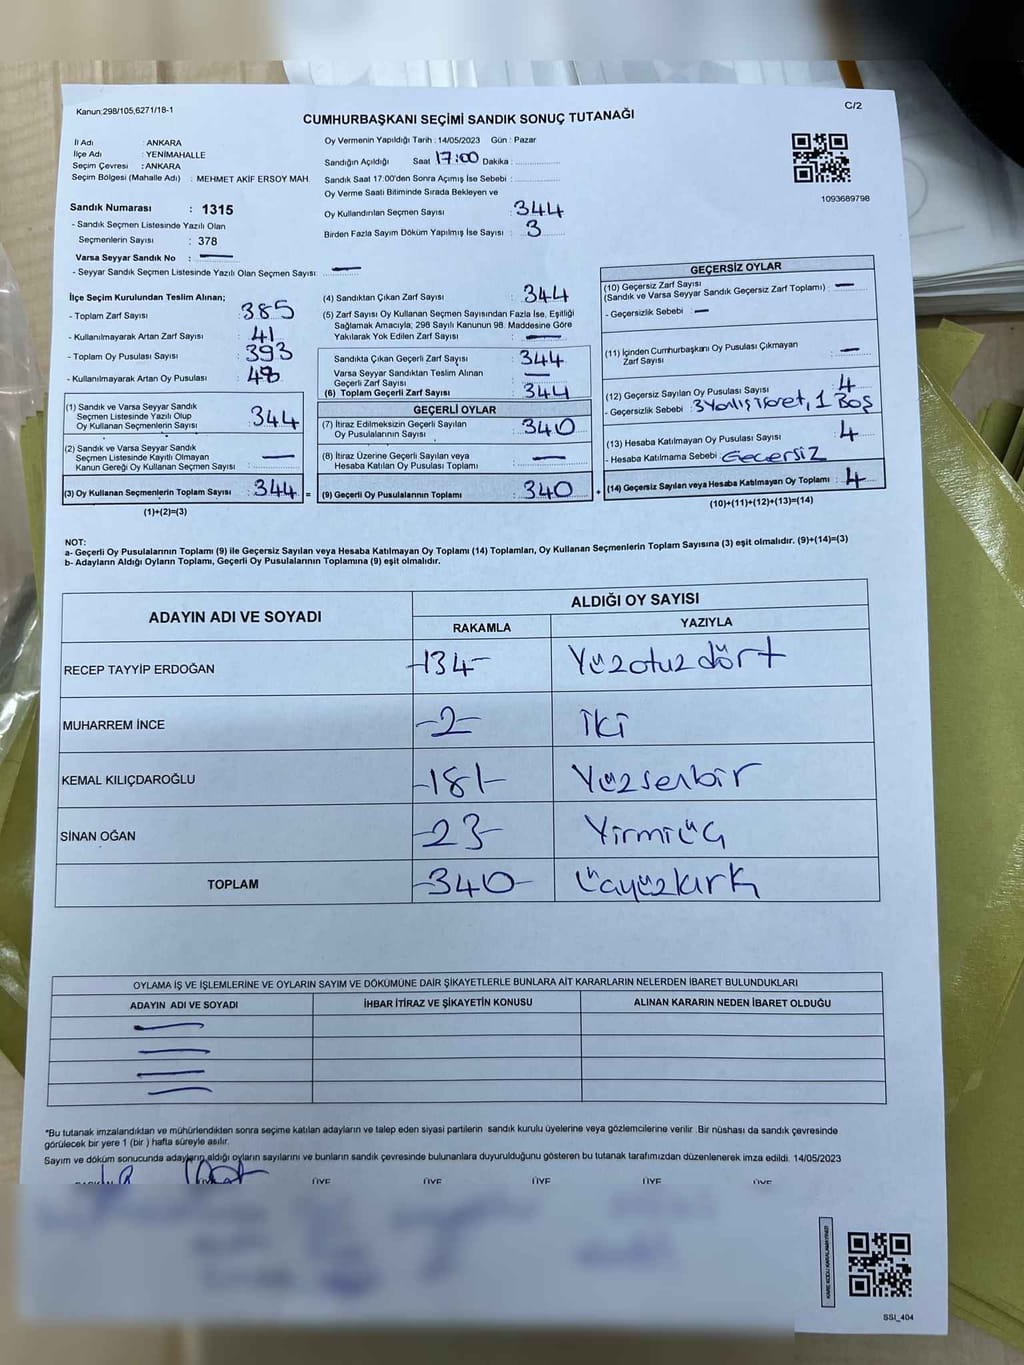 Kanun:298/105,6271/18-1
C/2
CUMHURBAŞKANI SEÇİMİ SANDIK SONUÇ TUTANAĞI
İl Adı : ANKARA
İlçe Adı : YENİMAHALLE
Seçim Çevresi : ANKARA
Seçim Bölgesi (Mahalle Adı) : MEHMET AKİF ERSOY MAH.
Oy Vermenin Yapıldığı Tarih : 14/05/2023 Gün : Pazar
Sandığın Açıldığı Saat 17:00 Dakika :
Sandık Saat 17.00'den Sonra Açımış İse Sebebi :
Oy Verme Saati Bitiminde Sırada Bekleyen ve
Oy Kullandırılan Seçmen Sayısı : 344
Birden Fazla Sayım Döküm Yapılmış İse Sayısı : 3
1093689798
Sandık Numarası : 1315
- Sandık Seçmen Listesinde Yazılı Olan
Seçmenlerin Sayısı : 378
Varsa Seyyar Sandık No : —
- Seyyar Sandık Seçmen Listesinde Yazılı Olan Seçmen Sayısı: —
İlçe Seçim Kurulundan Teslim Alınan;
- Toplam Zarf Sayısı : 385
- Kullanılmayarak Artan Zarf Sayısı : 41
- Toplam Oy Pusulası Sayısı : 393
- Kullanılmayarak Artan Oy Pusulası : 48
(1) Sandık ve Varsa Seyyar Sandık
Seçmen Listesinde Yazılı Olup
Oy Kullanan Seçmenlerin Sayısı : 344
(2) Sandık ve Varsa Seyyar Sandık
Seçmen Listesinde Kayıtlı Olmayan
Kanun Gereği Oy Kullanan Seçmen Sayısı : —
(3) Oy Kullanan Seçmenlerin Toplam Sayısı : 344 =
(1)+(2)=(3)
(4) Sandıktan Çıkan Zarf Sayısı : 344
(5) Zarf Sayısı Oy Kullanan Seçmen Sayısından Fazla İse, Eşitliği
Sağlamak Amacıyla, 298 Sayılı Kanunun 98. Maddesine Göre
Yakılarak Yok Edilen Zarf Sayısı : —
Sandıkta Çıkan Geçerli Zarf Sayısı : 344
Varsa Seyyar Sandıktan Teslim Alınan
Geçerli Zarf Sayısı : —
(6) Toplam Geçerli Zarf Sayısı : 344
GEÇERLİ OYLAR
(7) İtiraz Edilmeksizin Geçerli Sayılan
Oy Pusulalarının Sayısı : 340
(8) İtiraz Üzerine Geçerli Sayılan veya
Hesaba Katılan Oy Pusulası Toplamı : —
(9) Geçerli Oy Pusulalarının Toplamı : 340 +
GEÇERSİZ OYLAR
(10) Geçersiz Zarf Sayısı
(Sandık ve Varsa Seyyar Sandık Geçersiz Zarf Toplamı) : —
- Geçersizlik Sebebi : —
(11) İçinden Cumhurbaşkanı Oy Pusulası Çıkmayan
Zarf Sayısı : —
(12) Geçersiz Sayılan Oy Pusulası Sayısı : 4
- Geçersizlik Sebebi : 3 Yanlış İşaret, 1 Boş
(13) Hesaba Katılmayan Oy Pusulası Sayısı : 4
- Hesaba Katılmama Sebebi : Geçersiz
(14) Geçersiz Sayılan veya Hesaba Katılmayan Oy Toplamı : 4
(10)+(11)+(12)+(13)=(14)
NOT:
a- Geçerli Oy Pusulalarının Toplamı (9) ile Geçersiz Sayılan veya Hesaba Katılmayan Oy Toplamı (14) Toplamları, Oy Kullanan Seçmenlerin Toplam Sayısına (3) eşit olmalıdır. (9)+(14)=(3)
b- Adayların Aldığı Oyların Toplamı, Geçerli Oy Pusulalarının Toplamına (9) eşit olmalıdır.
ADAYIN ADI VE SOYADI
ALDIĞI OY SAYISI
RAKAMLA YAZIYLA
RECEP TAYYİP ERDOĞAN -134- Yüzotuzdört
MUHARREM İNCE -2- İki
KEMAL KILIÇDAROĞLU -181- Yüzsenbir
SİNAN OĞAN -23- Yirmiüç
TOPLAM -340- Üçyüzkırk
OYLAMA İŞ VE İŞLEMLERİNE VE OYLARIN SAYIM VE DÖKÜMÜNE DAİR ŞİKAYETLERLE BUNLARA AİT KARARLARIN NELERDEN İBARET BULUNDUKLARI
ADAYIN ADI VE SOYADI İHBAR İTİRAZ VE ŞİKAYETİN KONUSU ALINAN KARARIN NEDEN İBARET OLDUĞU
*Bu tutanak imzalandıktan ve mühürlendikten sonra seçime katılan adayların ve talep eden siyasi partilerin sandık kurulu üyelerine veya gözlemcilerine verilir. Bir nüshası da sandık çevresinde
görülecek bir yere 1 (bir) hafta süreyle asılır.
Sayım ve döküm sonucunda adayların aldığı oyların sayılarını ve bunların sandık çevresinde bulunanlara duyurulduğunu gösteren bu tutanak tarafımızdan düzenlenerek imza edildi. 14/05/2023
ÜYE ÜYE ÜYE ÜYE ÜYE
SSI_404